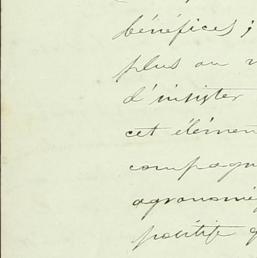 bénéfices ;
plus ou
d'insister
cet élémen
compagn
agronomi
positifs q